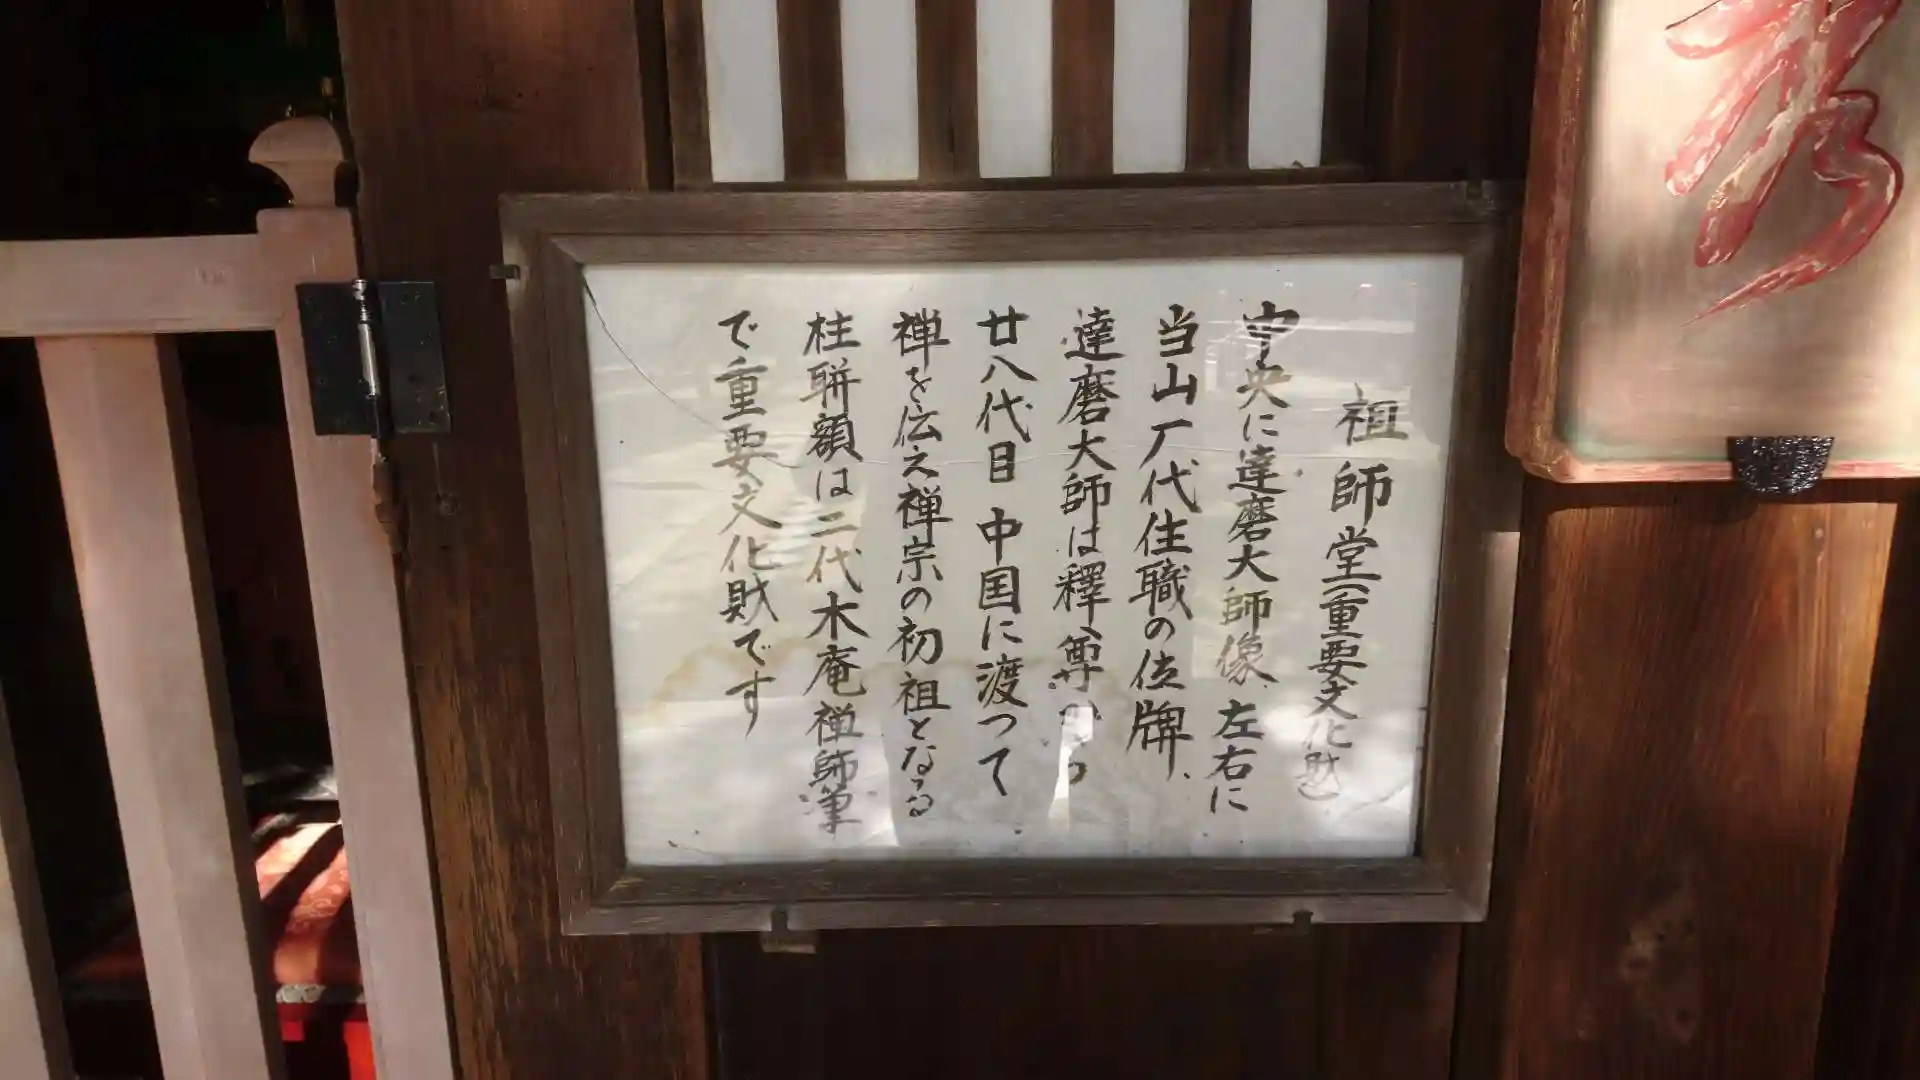 祖師堂(重要文化財)
中央に達磨大師像、左右に
当山厂代住職の位牌、
達磨大師は釋尊から
廿八代目中国に渡つて
禅を伝え禅宗の初祖となる
柱聯額は二代木庵禅師筆
で重要文化財です